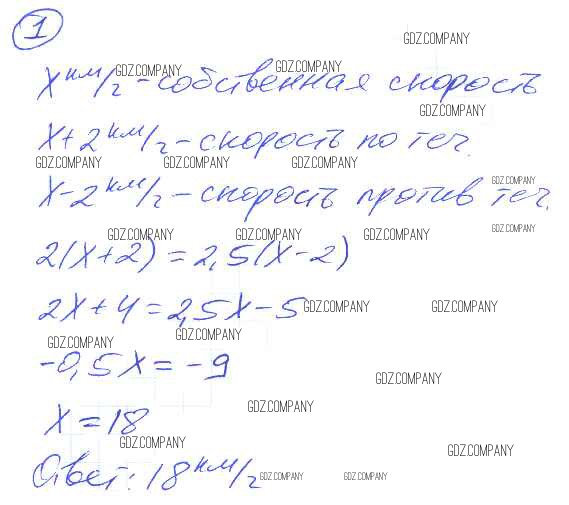 1
GDZ.COMPANY
х км/г - собственная скорость
GDZ.COMPANY GDZ.COMPANY
GDZ.COMPANY
х+2 км/г - скорость по теч.
GDZ.COMPANY GDZ.COMPANY GDZ.COMPANY
х-2 км/г - скорость против теч.
GDZ.COMPANY
GDZ.COMPANY
GDZ.COMPANY GDZ.COMPANY GDZ.COMPANY
2(х+2) = 2,5(х-2)
2х+4=2,5х-5
GDZ.COMPANY GDZ.COMPANY
GDZ.COMPANY GDZ.COMPANY
-0,5х = -9
GDZ.COMPANY
GDZ.COMPANY
х=18
GDZ.COMPANY
GDZ.COMPANY
Ответ: 18 км/г
GDZ.COMPANY GDZ.COMPANY